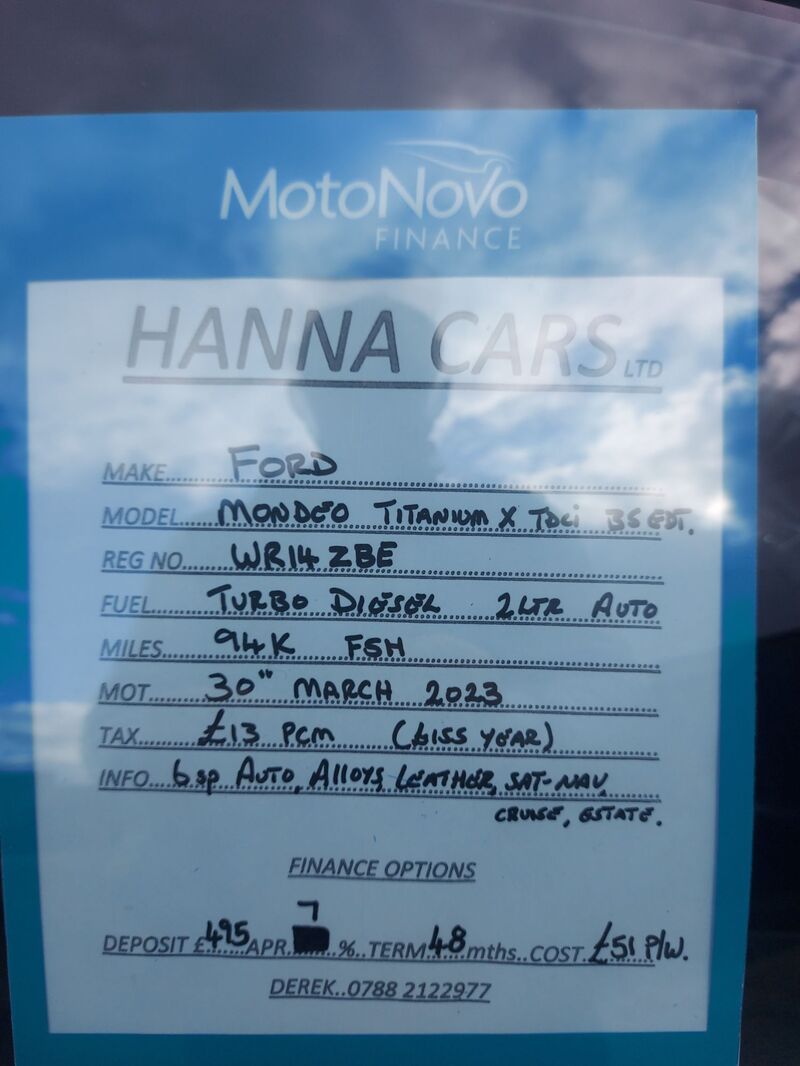 MotoNovo
FINANCE
HANNA CARS LTD
MAKE...... FORD
MODEL... MONDEO TITANIUM X TDCi BS EDT.
REG NO... WR14 ZBE
FUEL...... TURBO DIESEL 2LTR AUTO
MILES...... 94K FSH
MOT...... 30" MARCH 2023
TAX...... £13 PCM (£155 YEAR)
INFO... 6sp AUTO, ALLOYS, LEATHER, SAT-NAV,
CRUISE, ESTATE.
FINANCE OPTIONS
7
DEPOSIT £ 495 APR %..TERM 48 mths..COST. £51 P/W.
DEREK..0788 2122977